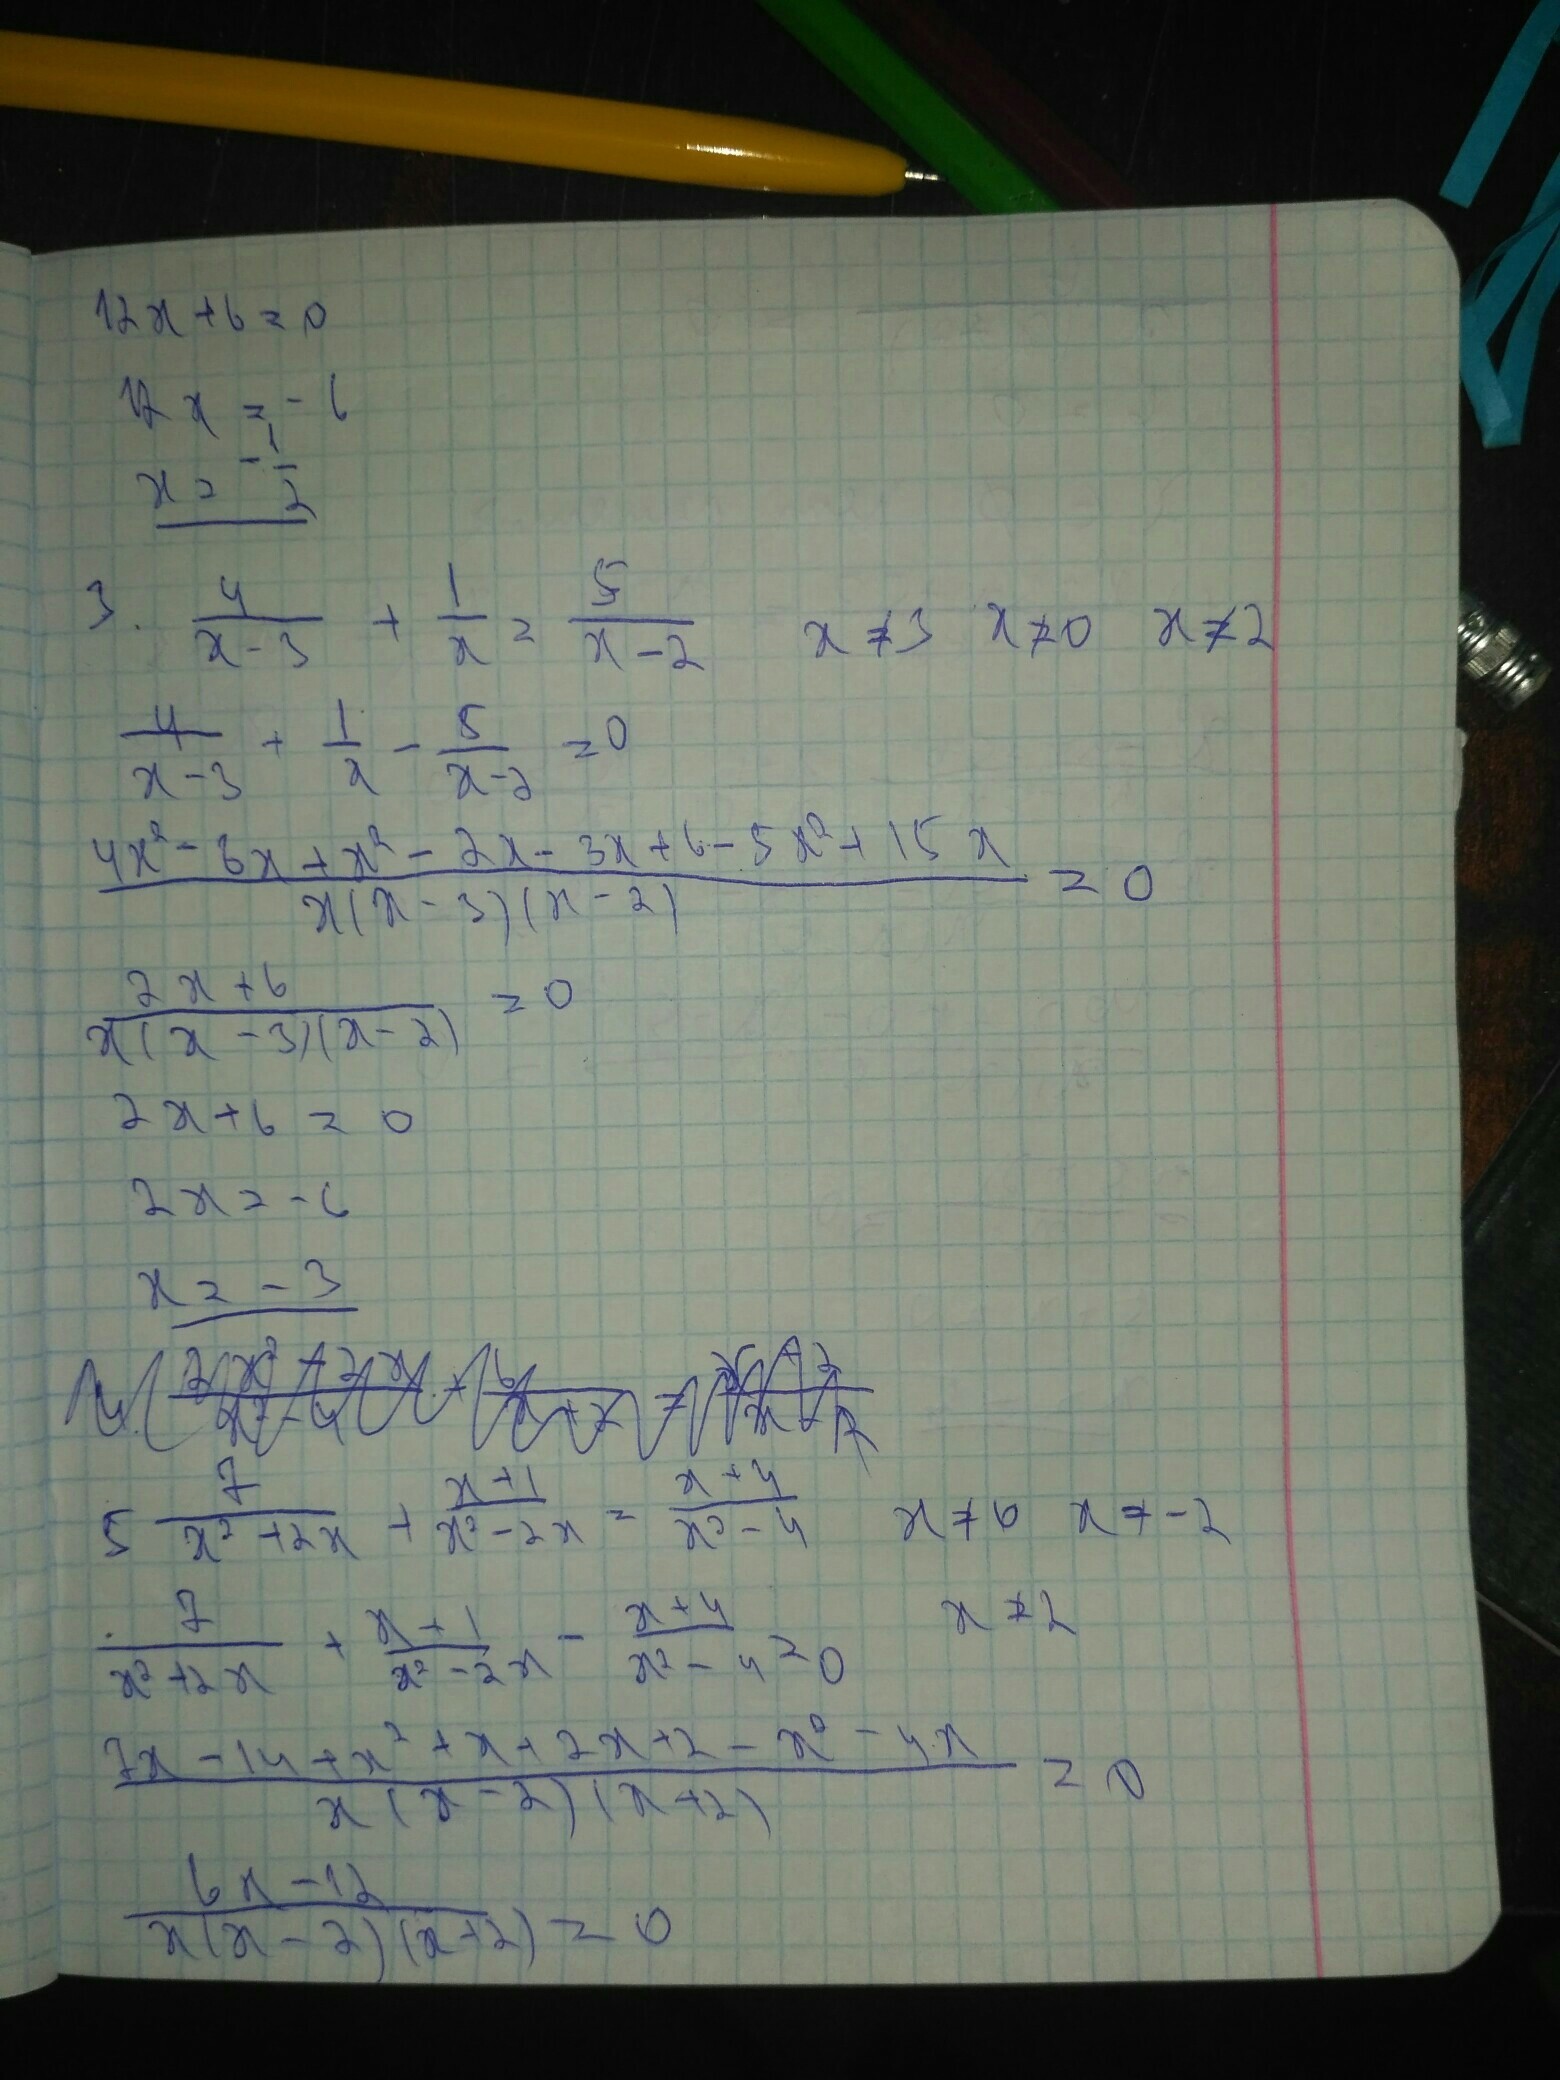 12x+6=0
12x=-6
x=-1/2
3. 4/(x-3) + 1/x = 5/(x-2) x≠3 x≠0 x≠2
4/(x-3) + 1/x - 5/(x-2) =0
(4x²-8x+x²-2x-3x+6-5x²+15x)/(x(x-3)(x-2)) =0
(2x+6)/(x(x-3)(x-2)) =0
2x+6=0
2x=-6
x=-3
5 7/(x²+2x) + (x+1)/(x²-2x) = (x+4)/(x²-4) x≠0 x≠-2
7/(x²+2x) + (x+1)/(x²-2x) - (x+4)/(x²-4) =0 x≠2
(7x-14+x²+x+2x+2-x²-4x)/(x(x-2)(x+2)) =0
(6x-12)/(x(x-2)(x+2)) =0